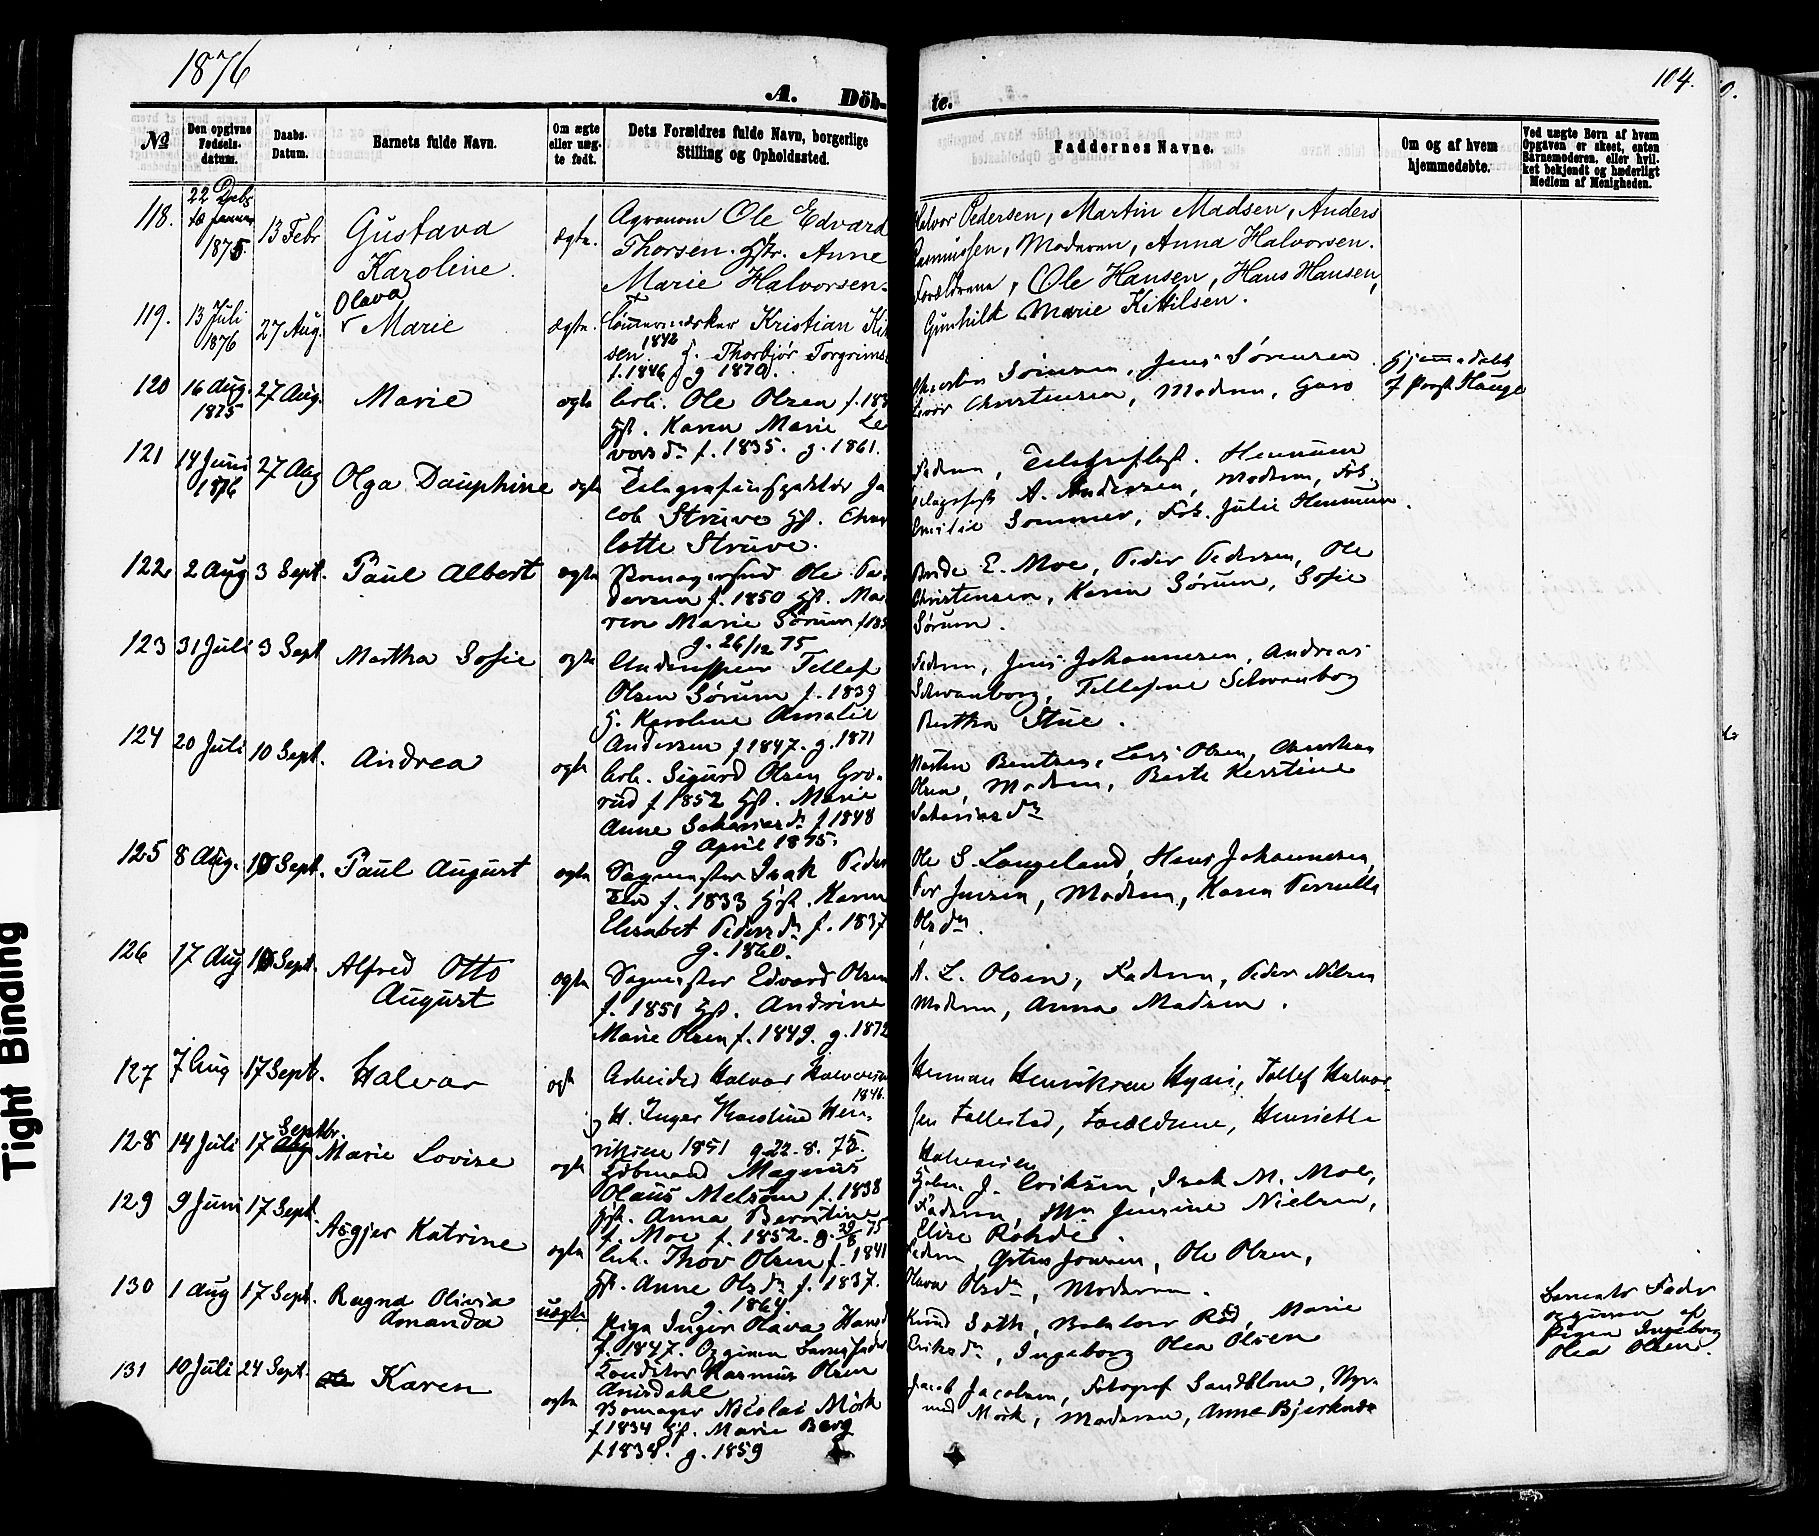 1876
104.
A. Döb-
te.
No
Den opgivne Fødsels-datum.
Daabs-Datum.
Barnets fulde Navn.
Om ægte eller uægte født.
Dets Forældres fulde Navn, borgerlige Stilling og Opholdssted.
Faddernes Navne.
Om og af hvem hjemmedøbte.
Ved uægte Børn af hvem Opgaven er skeet, enten Barnemoderen, eller hvilket bekjendt og hæderligt Medlem af Menigheden.
118. 22 1875. 13 Febr Gustava Karoline. ægte.
Agronom Ole Edvard
Thorsen. Hstr. Anne
Marie Halvorsen.
Halvor Pedersen, Martin Madsen, Anders
Rasmussen, Moderen, Anna Halvorsen.
119. 13 Juli 1876 27 Aug. Olava Marie ægte.
Kristian
sen. 1842 H. Thorbjør Torgrims
f. 1846 g 1870.
Forældrene, Ole Hansen, Hans Hansen,
Gunhild Marie Kittilsen.
120 16 Aug. 1875 27 Aug. Marie ægte
Ole Olsen f.
Hst. Karen Marie Le
vorsdr f. 1835. g. 1861.
Sørensen, Jens Sørensen
Christensen, Moderen, Guro
Hjemmedøbt
f Præst Hauge
121 14 Juni 1876 27 Aug Olga Dauphine ægte
Ja
cob Struve Hst. Char
lotte Struve.
Faderen, Hennum
A. Andersen, Moderen, Frk.
Emilie Sommer, Frk. Julie Hennum.
122. 2 Aug 3 Sept. Paul Albert ægte
Ole Pe
dersen f. 1850 Hst. Ma
ren Marie Sørum
g. 26/12 75
E. Moe, Peder Pedersen, Ole
Christensen, Karen Sørum, Sofie
Sørum.
123 31 Juli 3 Sept Martha Sofie ægte
Tellef
Olsen Sørum f. 1839
H. Karoline Amalie
Andersen f 1847. g. 1871
Faderen, Jens Johannesen, Andreas
Schwanborg, Tellefine Schwanborg
Bertha Stue.
124 20 Juli 10 Sept. Andrea ægte
Sigurd Olsen Gro-
rud f 1852 Hst. Marie
Anne Sakariasdr f 1848
g April 1875.
Morten Bentsen, Lars Olsen, Christian
Olsen, Moderen, Berte Kirstine
Sakariasdr
125 8 Aug. 10 Sept. Paul August ægte
Sagmester Isak Peder
sen f. 1833 Hst. Karen
Elisabet Pedersdr f. 1837
g. 1860.
Ole S. Langeland, Hans Johannesen,
Per Jensen, Moderen, Karen Pernille
Olsdr.
126 17 Aug 10 Sept. Alfred Otto August ægte
Sagmester Edvard Olsen
f. 1851 Hst. Andrine
Marie Olsen f. 1849. g. 1872
A. L. Olsen, Faderen, Peder Nilsen
Moderen, Anna Madsen.
127 7 Aug 17 Sept. Halvor ægt
Arbeider Halvor Halvorsen
1846.
H. Inger Karoline Hen-
riksen 1851 g 22. 8. 75.
Herman Henriksen Tollef Halvor-
sen Tollestad, Forældrene, Henriette
Halvorsen
128 14 Juli 17 Septbr. Marie Lovise ægte
Kjøbmand Magnus
Olaus Melsom f. 1838
Hst. Anna Berntine
f. Moe f. 1852. g. 29/8 75
J. Eriksen, Isak M. Moe,
Faderen, Jensine Nielsen,
Elise Rohde.
129 9 Juni 17 Sept. Asgjer Katrine ægte
Thov Olsen f. 1841
Hst. Anne Olsdr f. 1837.
g. 1864.
Faderen, Ole Olsen,
Olava Olsdr, Moderen.
130 1 Aug 17 Sept. Ragna Olivia Amanda uægte
Pige Inger Olava Hansd
f. 1847. Opgiven Barnefader
Konditor Rasmus Olsen
Amsdahl
Knud Sæth, Marie
Eriksdr, Ingeborg Olea Olsen
Barnets Fader
opgiven af
Pigen Ingeborg
Olea Olsen.
131 10 Juli 24 Sept. Karen ægte
Nicolai Mørk
f 1834 Hst. Marie Berg
f 1838. g. 1859
Jacob Jacobsen, Fotograf Sandblom,
Mørk, Moderen, Anne Bjerknæs
Tight Binding